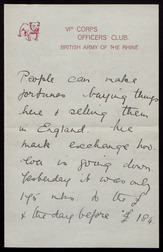 VIᵗʰ CORPS
OFFICERS' CLUB.
BRITISH ARMY OF THE RHINE
People can make
fortunes buying things
here & selling them
in England. The
mark exchange how-
ever is going down
Yesterday it was only
175 mks. to the £
& the day before it 184